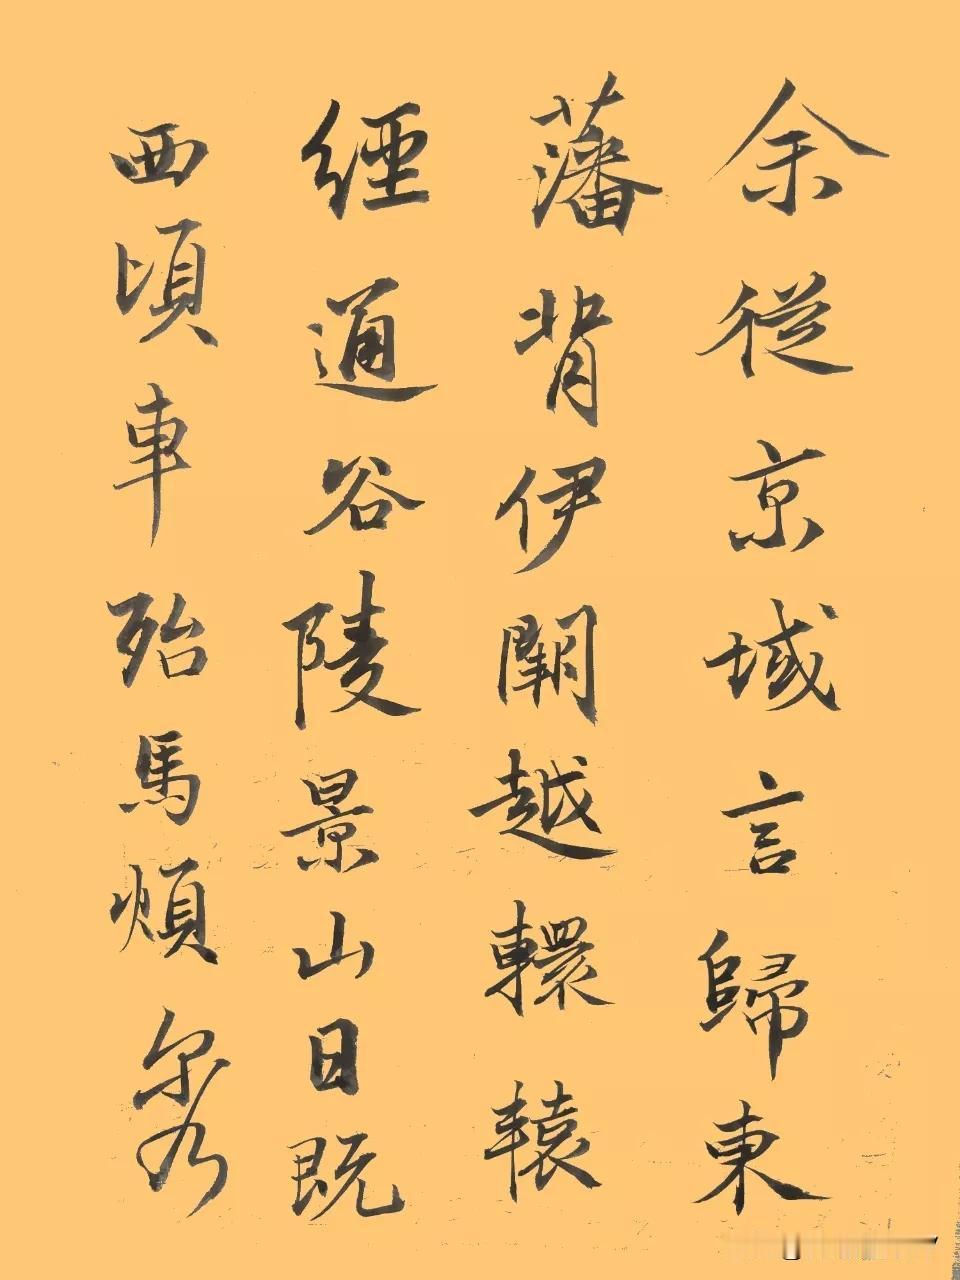 余從京域言歸東
藩背伊闕越轘轅
經通谷陵景山日既
西頃車殆馬煩尔乃